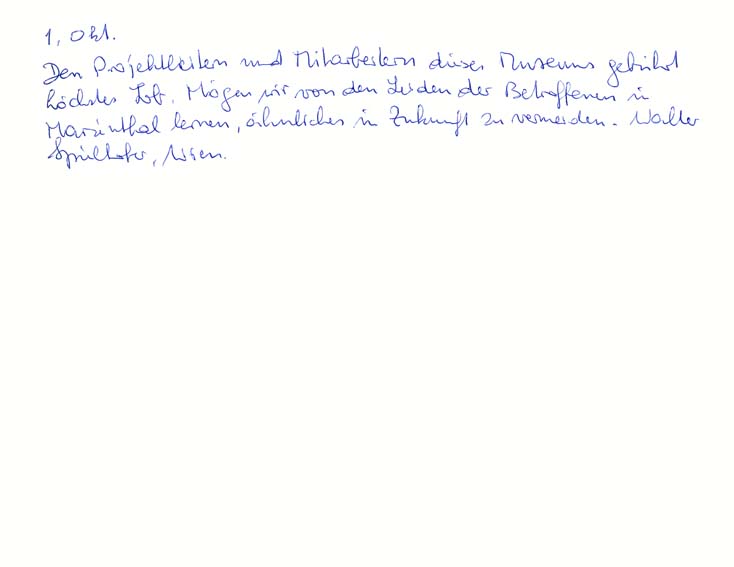 1. Okt.
Den Projektleitern und Mitarbeitern dieses Museums gebührt
höchstes Lob. Mögen wir von den Leiden der Betroffenen in
Marienthal lernen, ähnliches in Zukunft zu vermeiden. Walter
Spielhofer, Wien.